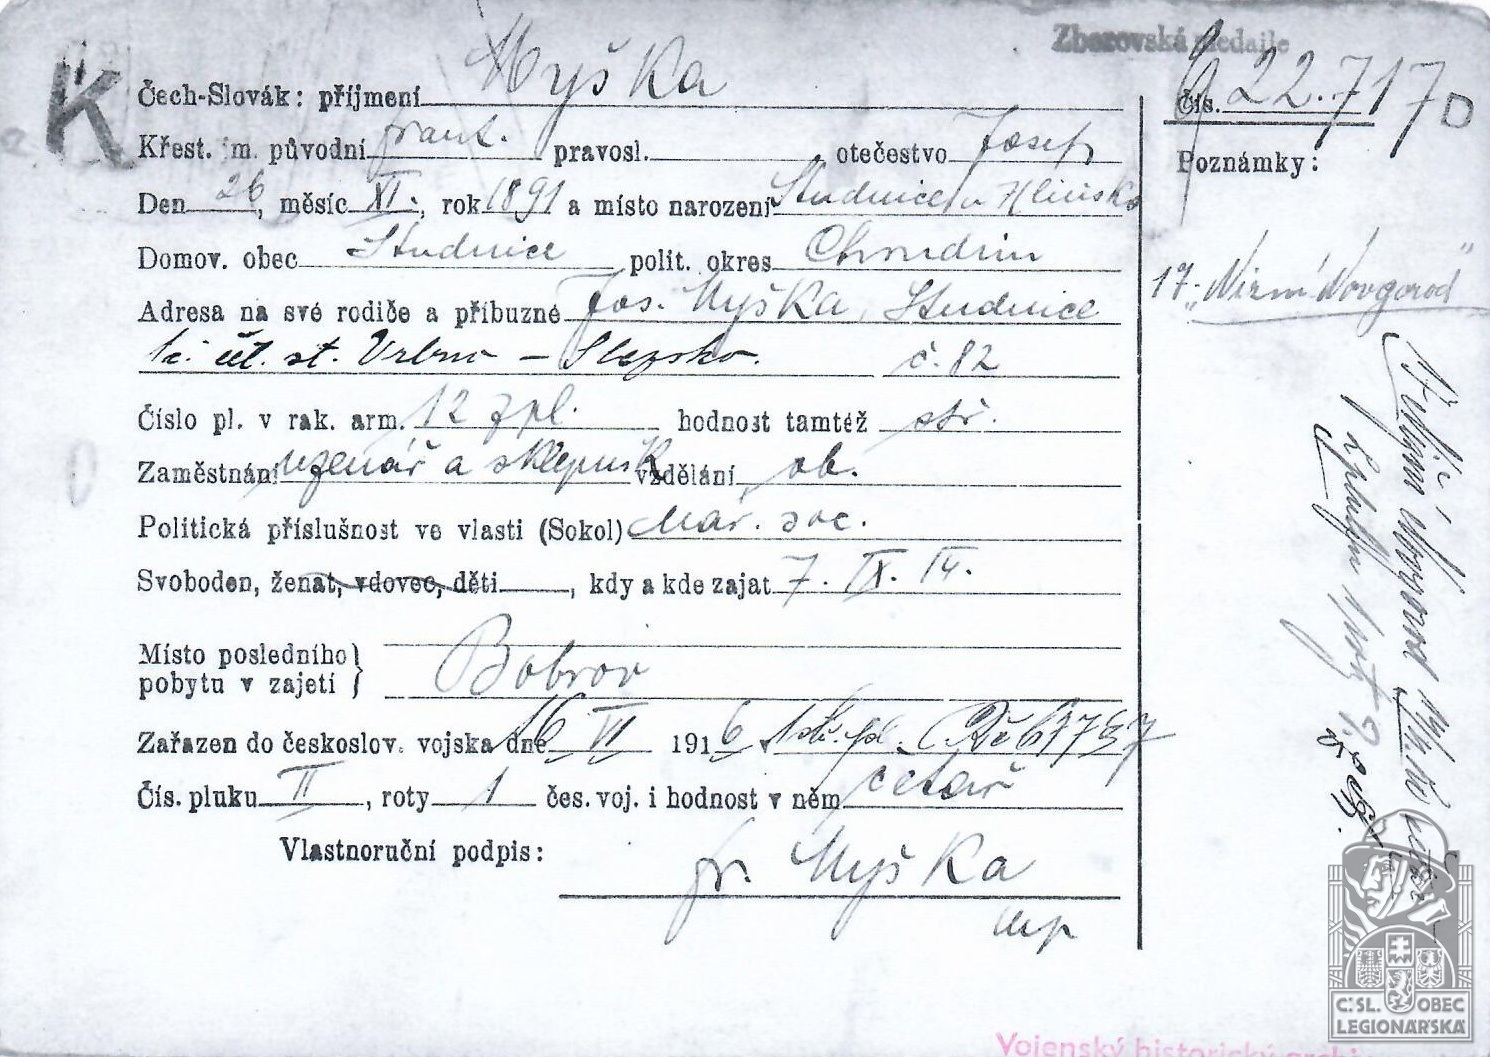 Zborovská medaile
K
Čech-Slovák: příjmení Myška
Čís. 22.717 D
Křest. jm. původní Frant. pravosl. , otečestvo Josef
Poznámky:
Den 26, měsíc XI., rok 1891 a místo narození Studnice u Hlinska
Domov. obec Studnice polit. okres Chrudim
17. „Nižní Novgorod"
Adresa na své rodiče a příbuzné Jos. Myška, Studnice
st. Vrbno - Slezsko. č. 82
Číslo pl. v rak. arm. 12 hodnost tamtéž stř.
Zaměstnání uzenář a sklepník vzdělání ob.
Politická příslušnost ve vlasti (Sokol) nár. soc.
Svoboden, ženat, vdovec, děti , kdy a kde zajat 7. IX. 14.
Místo posledního
pobytu v zajetí } Bobrov
Zařazen do českoslov. vojska dne 16 VI 1916
Čís. pluku II, roty 1 čes. voj. i hodnost v něm četař
Vlastnoruční podpis:
fr. Myška
mp
Č.SL. OBEC
LEGIONÁŘSKÁ
Vojenský historický archi